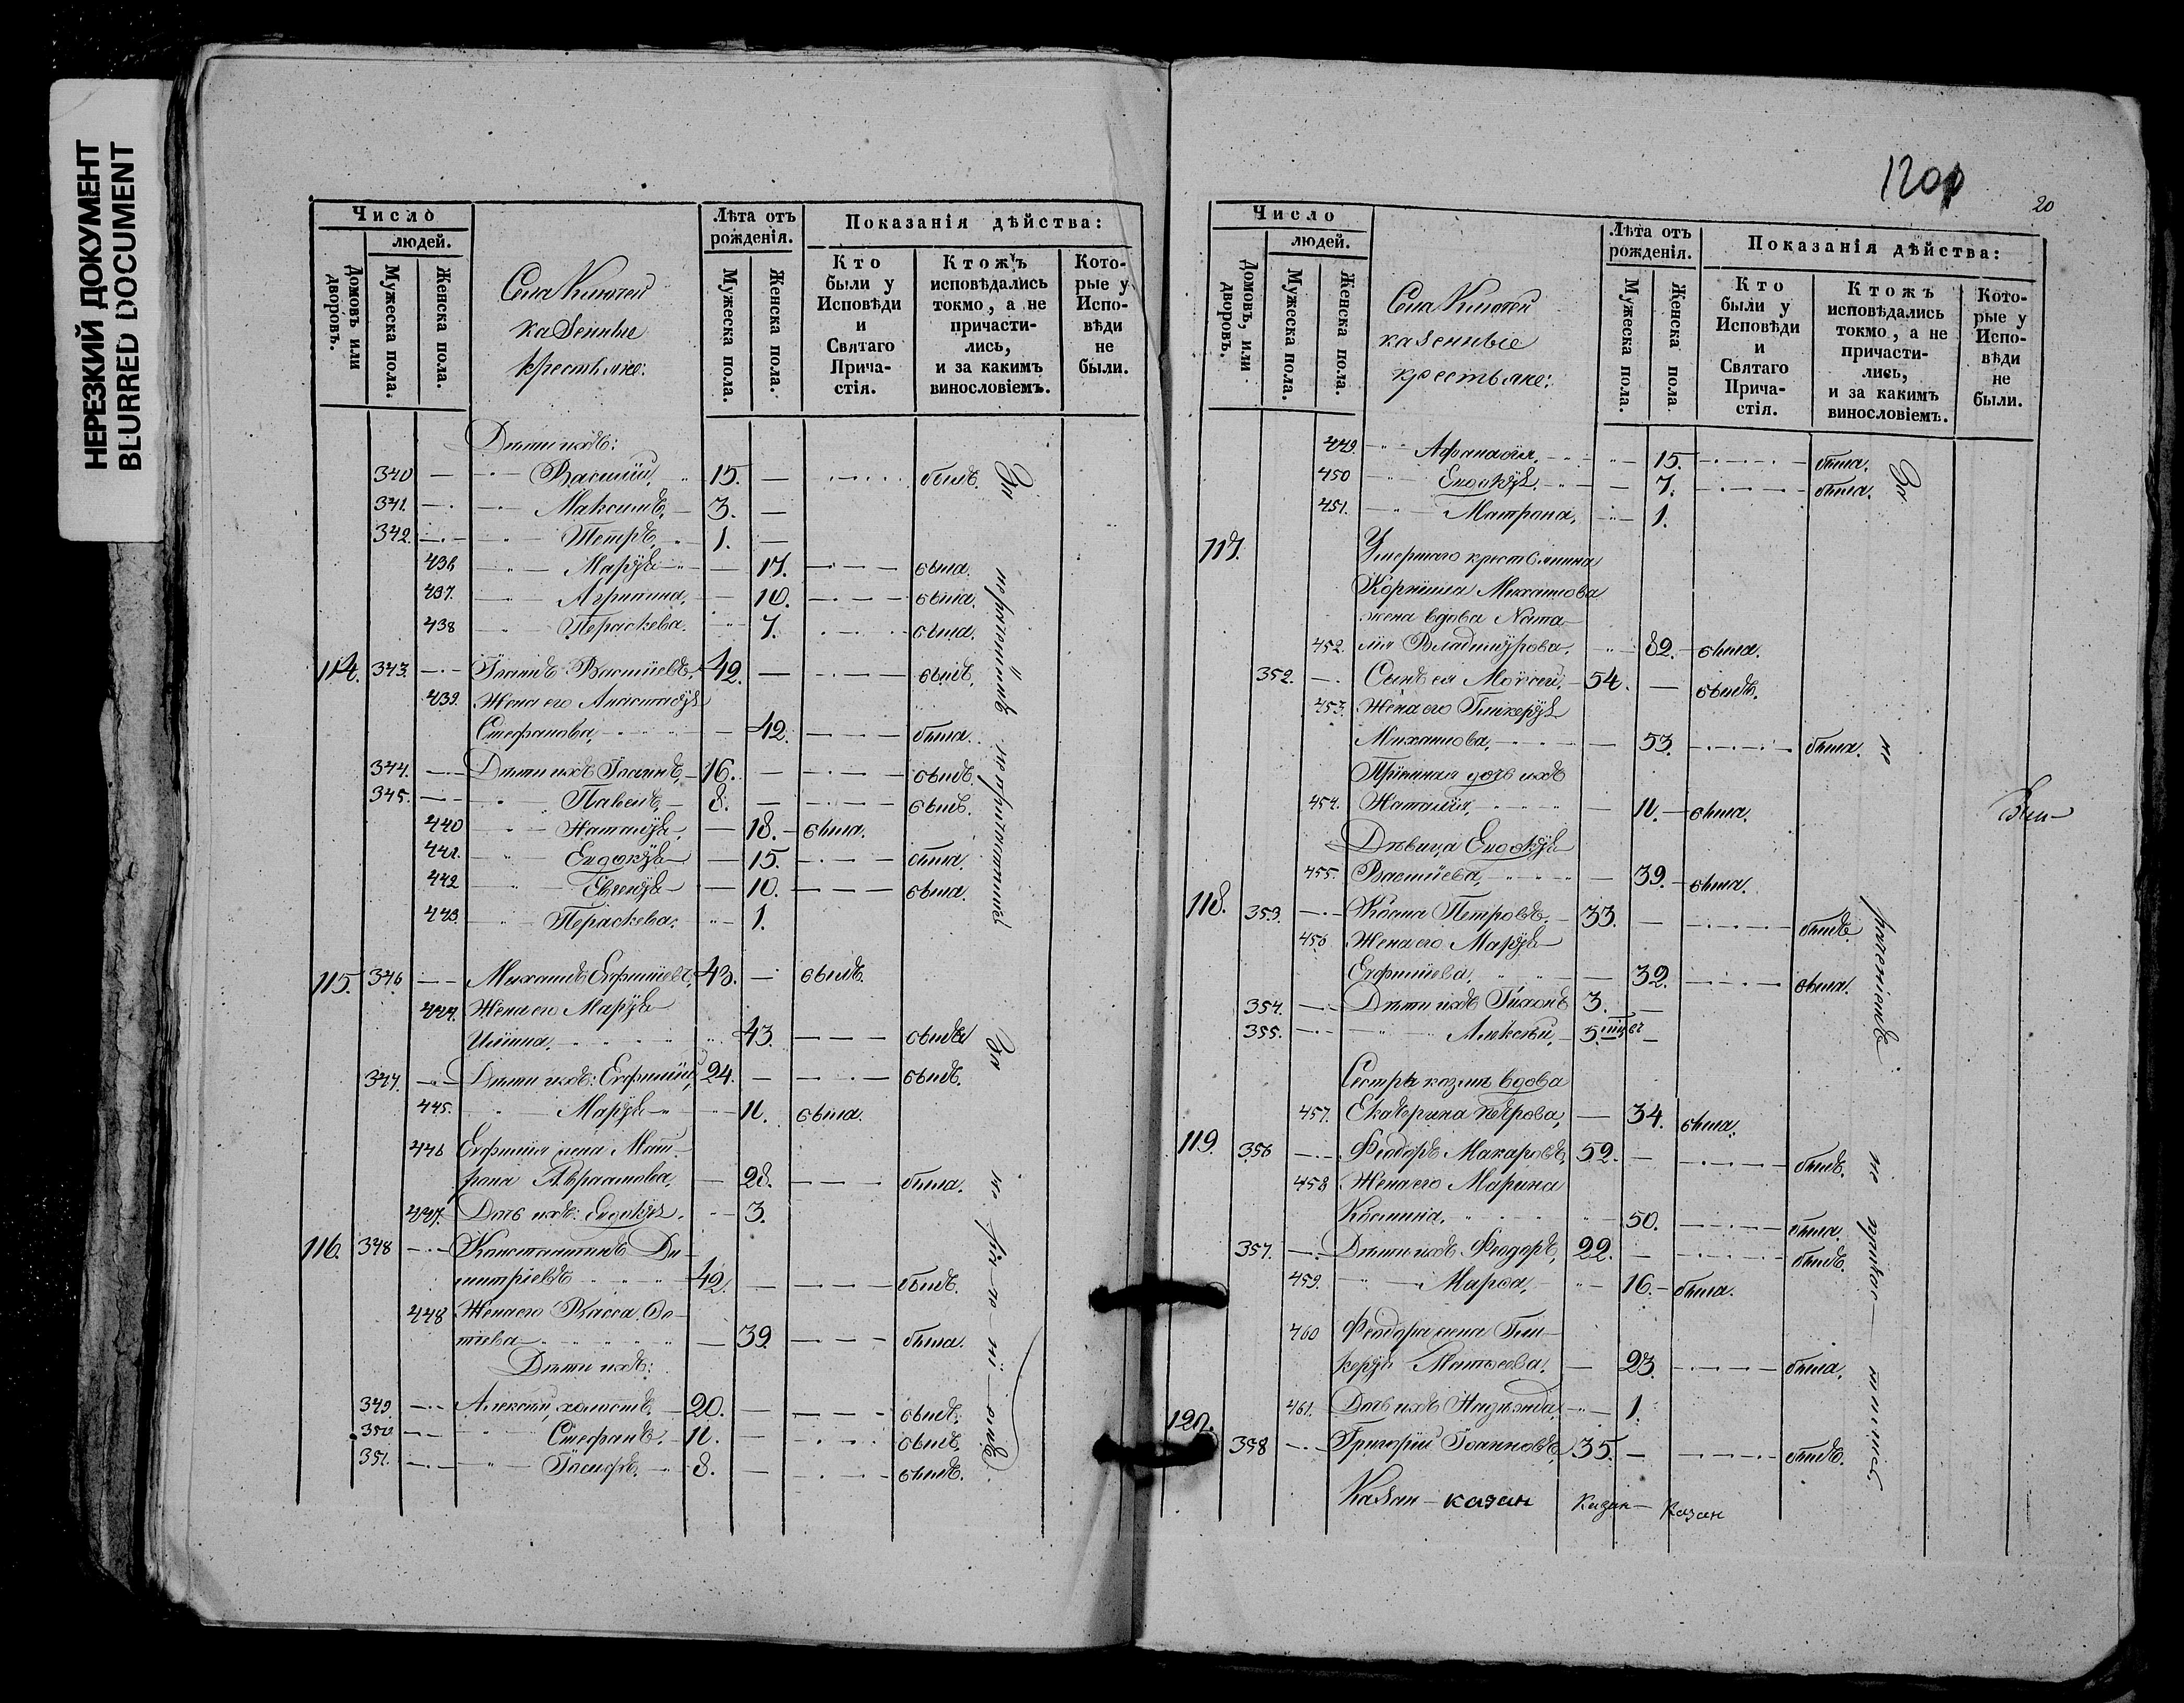 НЕРЕЗКИЙ ДОКУМЕНТ
BLURRED DOCUMENT
Число
людей.
Домовъ или дворовъ.
Мужеска пола.
Женска пола.
Села
казенные
крестьяне:
Лѣта отъ рожденія.
Мужеска пола.
Женска пола.
Показанія дѣйства:
Кто были у Исповѣди и Святаго Прича-стія.
Ктожъ исповѣдались токмо, а не причасти-лись, и за какимъ винословіемъ.
Кото-рые у Испо-вѣди не были.
Дѣти ихъ:
340 Василій, 15. былъ. За
341. Максимъ, 3.
342. Петръ, 1.
436 Марія 17. была.
437. Агрипина, 10. была.
438 Пераскева. 7. была.
114. 343. Іоаннъ Васильевъ, 42. былъ.
439. Жена его Анастасія
Стефанова, 42. была.
344. Дѣти ихъ Іоаннъ, 16. былъ.
345. Павелъ, 8. былъ.
440 Наталія, 18. была.
441. Евдокія 15. была.
442 Евгенія 10. была.
443. Пераскева. 1.
нераченіемъ не причастились
115. 346 Михаилъ Евфиміевъ, 43. былъ.
444. Жена его Марія
Ильина, 43. была За
347. Дѣти ихъ: Евфимій, 24. былъ.
445. Марія 11. была.
446 Евфимія жена Мат-
рона Аврамова, 28. была.
447. Дочь ихъ: Евдокія. 3.
116. 348 Константинъ Ди-
митріевъ 42. былъ.
448 Жена его Васса Фо-
тіева 39. была.
Дѣти ихъ:
349. Алексій, холостъ, 20. былъ.
350 Стефанъ, 11. былъ.
351. Іосифъ, 8. былъ.
1200
20
Число
людей.
Домовъ, или дворовъ.
Мужеска пола.
Женска пола.
Села
казенные
крестьяне:
Лѣта отъ рожденія.
Мужеска пола.
Женска пола
Показанія дѣйства:
Кто были у Исповѣди и Святаго Прича-стія.
Ктожъ исповѣдались токмо, а не причасти-лись, и за какимъ винословіемъ.
Кото-рые у Испо-вѣди не были.
449. Афанасія, 15. была. За
450 Евдокія, 7. была.
451. Матрона, 1.
117. Умершаго крестьянина
Корнилія Михаилова
жена вдова Ната-
452. лія Владимірова, 82. была.
352. Сынъ ея Моисей, 54. былъ.
453. Жена его Гликерія
Михаилова, 53. была. не
Пріемная дочь ихъ
454. Наталія, 11. была.
Дѣвица Евдокія
455. Васильева, 39. была.
118. 353. Косма Петровъ, 33. былъ.
456 Жена его Марія
Евфиміева, 32. была.
раченіемъ
354. Дѣти ихъ Тихонъ 3.
355. Алексѣй, 5
Сестра козмы вдова
457. Екатерина Петрова, 34. была.
119. 356 Феодоръ Макаровъ, 52. былъ.
458 Жена его Марина
Космина, 50. была.
357. Дѣти ихъ Феодоръ, 22. былъ.
459. Марѳа, 16. была.
460 Феодора жена Гли-
керія Матѳеева, 23. была.
461. Дочь ихъ Надежда, 1.
120. 358 Григорій Іоанновъ, 35. былъ.
Казан- казан Казан- Казан